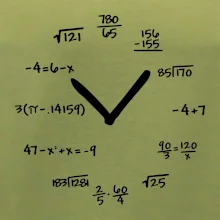 780
65
√121
156
-155
-4=6-x
85)170
3(π-.14159)
-4+7
47-x²+x=-9
90/3=120/x
183)1281
2/5·60/4
√25